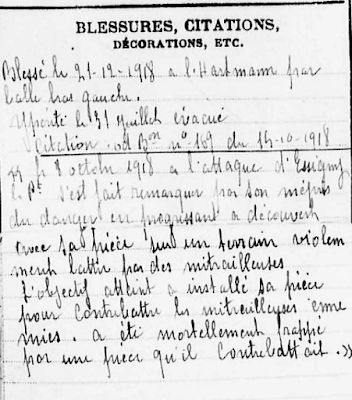 BLESSURES, CITATIONS,
DÉCORATIONS, ETC.
Blessé le 21-12-1918 a l'Hartmann par
balle bras gauche.
Ypérité le 31 juillet évacué
Citation. od Bon nº 169 du 14-10-1918
le 8 octobre 1918 a l'attaque d'Essigny
le s'est fait remarquer par son mépris
du danger en progressant a découvert
avec sa pièce sur un terrain violem
ment battu par des mitrailleuses
L'objectif atteint a installé sa pièce
pour contrebattre les mitrailleuses enne
mies. a été mortellement frappé
par une pièce qu'il contrebattait. »